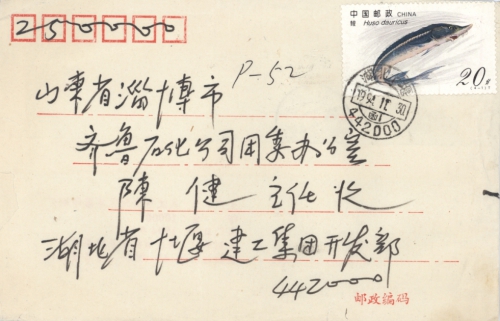 250000
中国邮政 CHINA
鳇 Huso dauricus
20分
P-52
山東省淄博市
湖北
1994.11.30
442000
齐鲁石化公司团委办公室
陳 健 主任 收
湖北省十堰 建工集团开发部
442000
邮政编码